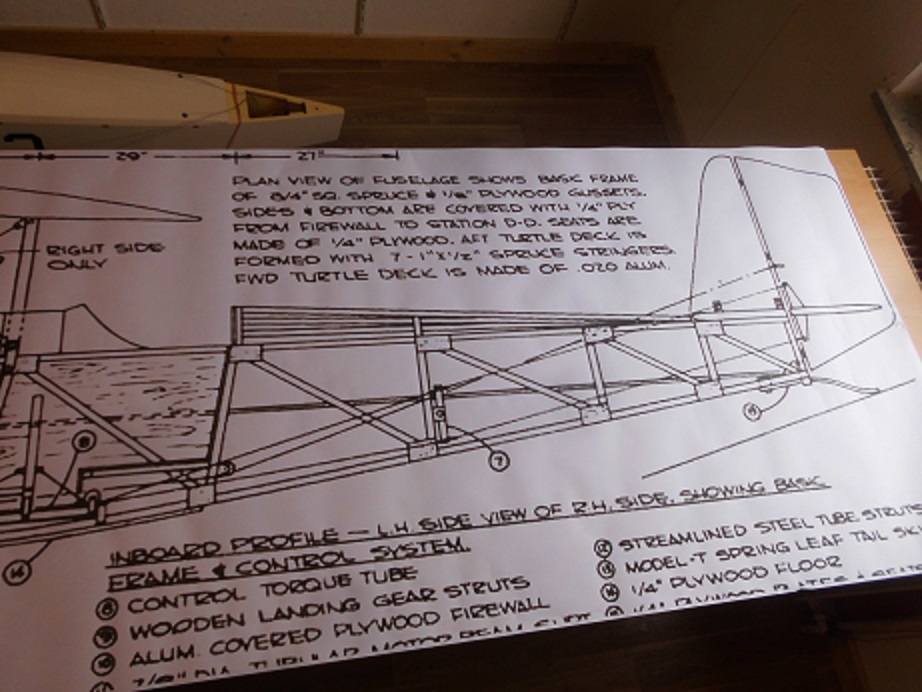 29"
27"
PLAN VIEW OF FUSELAGE SHOWS BASIC FRAME
OF 3/4" SQ. SPRUCE & 1/8" PLYWOOD GUSSETS.
SIDES & BOTTOM ARE COVERED WITH 1/4" PLY
FROM FIREWALL TO STATION D-D. SEATS ARE
MADE OF 1/4" PLYWOOD. AFT TURTLE DECK IS
FORMED WITH 7 - 1"X1/2" SPRUCE STRINGERS.
FWD TURTLE DECK IS MADE OF .020 ALUM.
RIGHT SIDE
ONLY
8
7
14
INBOARD PROFILE — L.H. SIDE VIEW OF R.H. SIDE, SHOWING BASIC
FRAME & CONTROL SYSTEM.
8 CONTROL TORQUE TUBE
WOODEN LANDING GEAR STRUTS
ALUM. COVERED PLYWOOD FIREWALL
STREAMLINED STEEL TUBE STRUTS
MODEL-T SPRING LEAF TAIL
1/4" PLYWOOD FLOOR